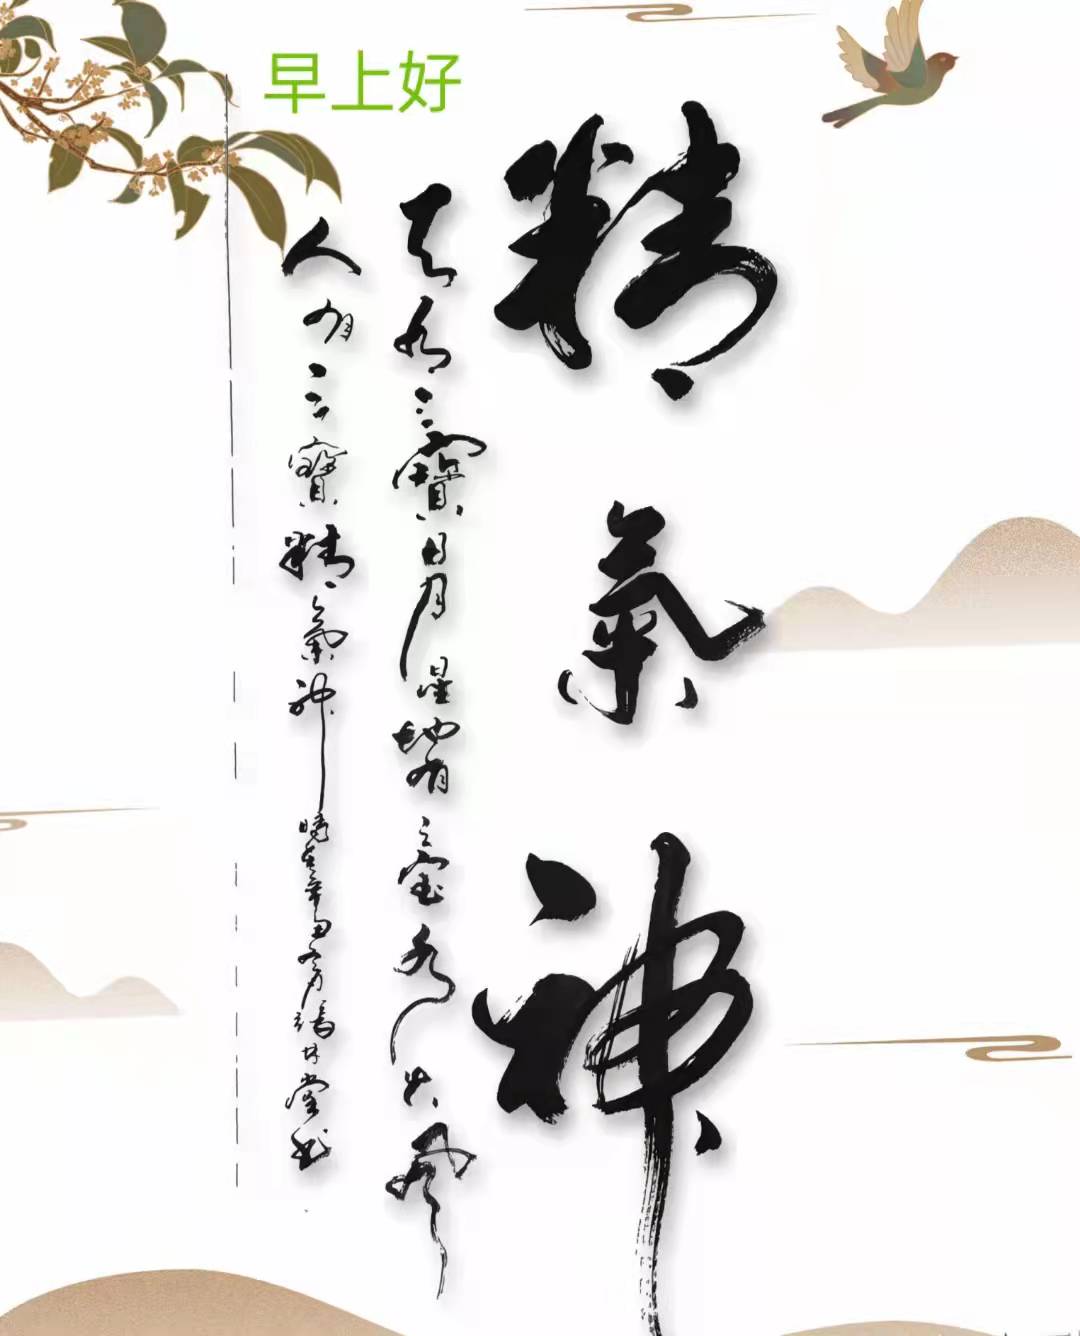 早上好
精氣神
天有三寶日月星地有三寶水火風
人有三寶精氣神